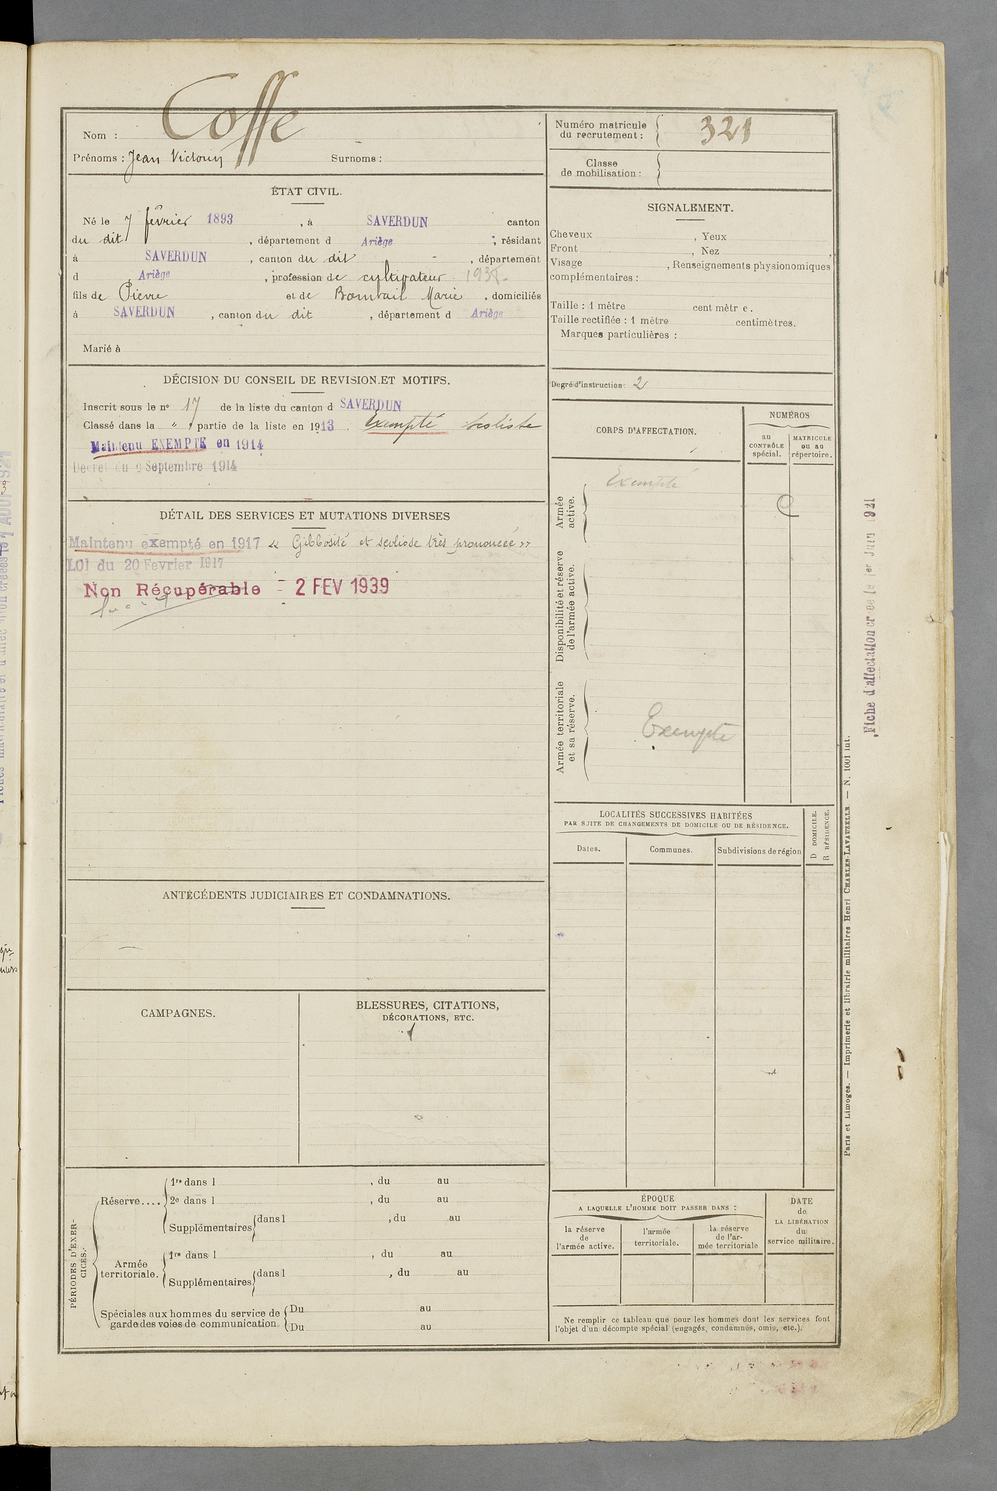 Nom : Coffe
Prénoms : Jean Victorin Surnoms :
Numéro matricule du recrutement : 321
Classe de mobilisation :
ÉTAT CIVIL.
Né le 7 février 1893, à SAVERDUN canton
du dit, département d Ariège, résidant
à SAVERDUN, canton du dit, département
d Ariège, profession de cultivateur
fils de Pierre et de Marie, domiciliés
à SAVERDUN, canton du dit, département d Ariège
Marié à
SIGNALEMENT.
Cheveux , Yeux
Front , Nez
Visage , Renseignements physionomiques
complémentaires :
Taille : 1 mètre centimètres.
Taille rectifiée : 1 mètre centimètres.
Marques particulières :
Degré d'instruction : 2
DÉCISION DU CONSEIL DE REVISION ET MOTIFS.
Inscrit sous le n° 17 de la liste du canton d SAVERDUN
Classé dans la " partie de la liste en 1913. Exempté scoliose
Maintenu EXEMPTÉ en 1914
Décret du 9 Septembre 1914
DÉTAIL DES SERVICES ET MUTATIONS DIVERSES
Maintenu exempté en 1917 « Gibbosité et scoliose très prononcée »
LOI du 20 Fevrier 1917
Non Récupérable - 2 FEV 1939
CORPS D'AFFECTATION.
NUMÉROS
au CONTRÔLE spécial.
MATRICULE ou au répertoire.
Armée active.
Exempté
Disponibilité et réserve de l'armée active.
Armée territoriale et sa réserve.
Exempté
LOCALITÉS SUCCESSIVES HABITÉES
PAR SUITE DE CHANGEMENTS DE DOMICILE OU DE RÉSIDENCE.
Dates. Communes. Subdivisions de région
D DOMICILE.
R RÉSIDENCE.
ANTÉCÉDENTS JUDICIAIRES ET CONDAMNATIONS.
CAMPAGNES.
BLESSURES, CITATIONS,
DÉCORATIONS, ETC.
PÉRIODES D'EXERCICES.
Réserve....
1re dans l , du au
2e dans l , du au
Supplémentaires dans l , du au
Armée territoriale.
1re dans l , du au
Supplémentaires dans l , du au
Spéciales aux hommes du service de garde des voies de communication.
Du au
Du au
ÉPOQUE
A LAQUELLE L'HOMME DOIT PASSER DANS :
la réserve de l'armée active.
l'armée territoriale.
la réserve de l'armée territoriale
DATE de LA LIBÉRATION du service militaire.
Ne remplir ce tableau que pour les hommes dont les services font
l'objet d'un décompte spécial (engagés, condamnés, omis, etc.).
Paris et Limoges. — Imprimerie et librairie militaires Henri CHARLES-LAVAUZELLE — N. 1001 int.
Fiche d'affectation créée le 1er Juin 1921